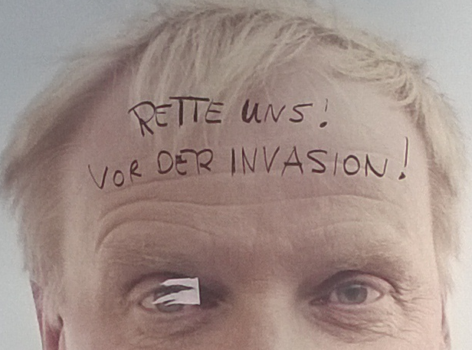 RETTE UNS!
VOR DER INVASION!